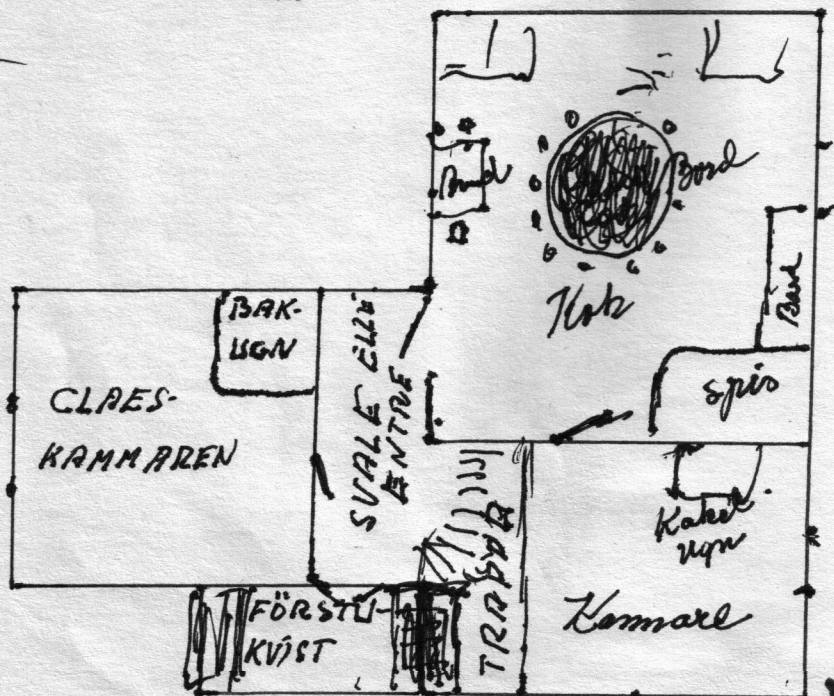 Bord
Bord
Kök
Bord
spis
BAK-
UGN
CLAES-
KAMMAREN
SVALE ELLE
ENTRE
TRAPPA
Kakel
ugn
Kammare
FÖRSTU-
KVIST